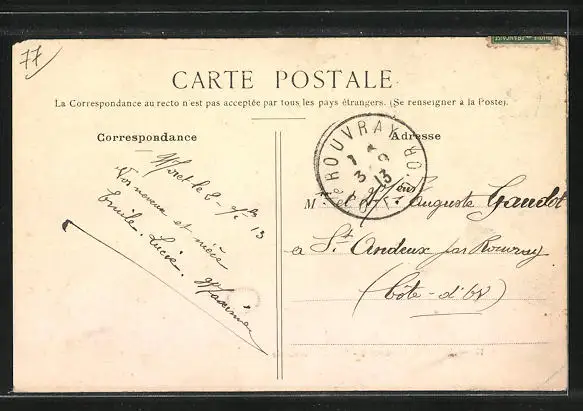 77
CARTE POSTALE
La Correspondance au recto n'est pas acceptée par tous les pays étrangers. (Se renseigner à la Poste).
Correspondance
Adresse
ROUVRAY
CÔTE-D'OR
13
Moret le 8
13
Vos neveux et nièce
Emile. Lucie. Maxime
M. et Auguste Gaudot
a St Andeux par Rouvray
(Côte-d'Or)